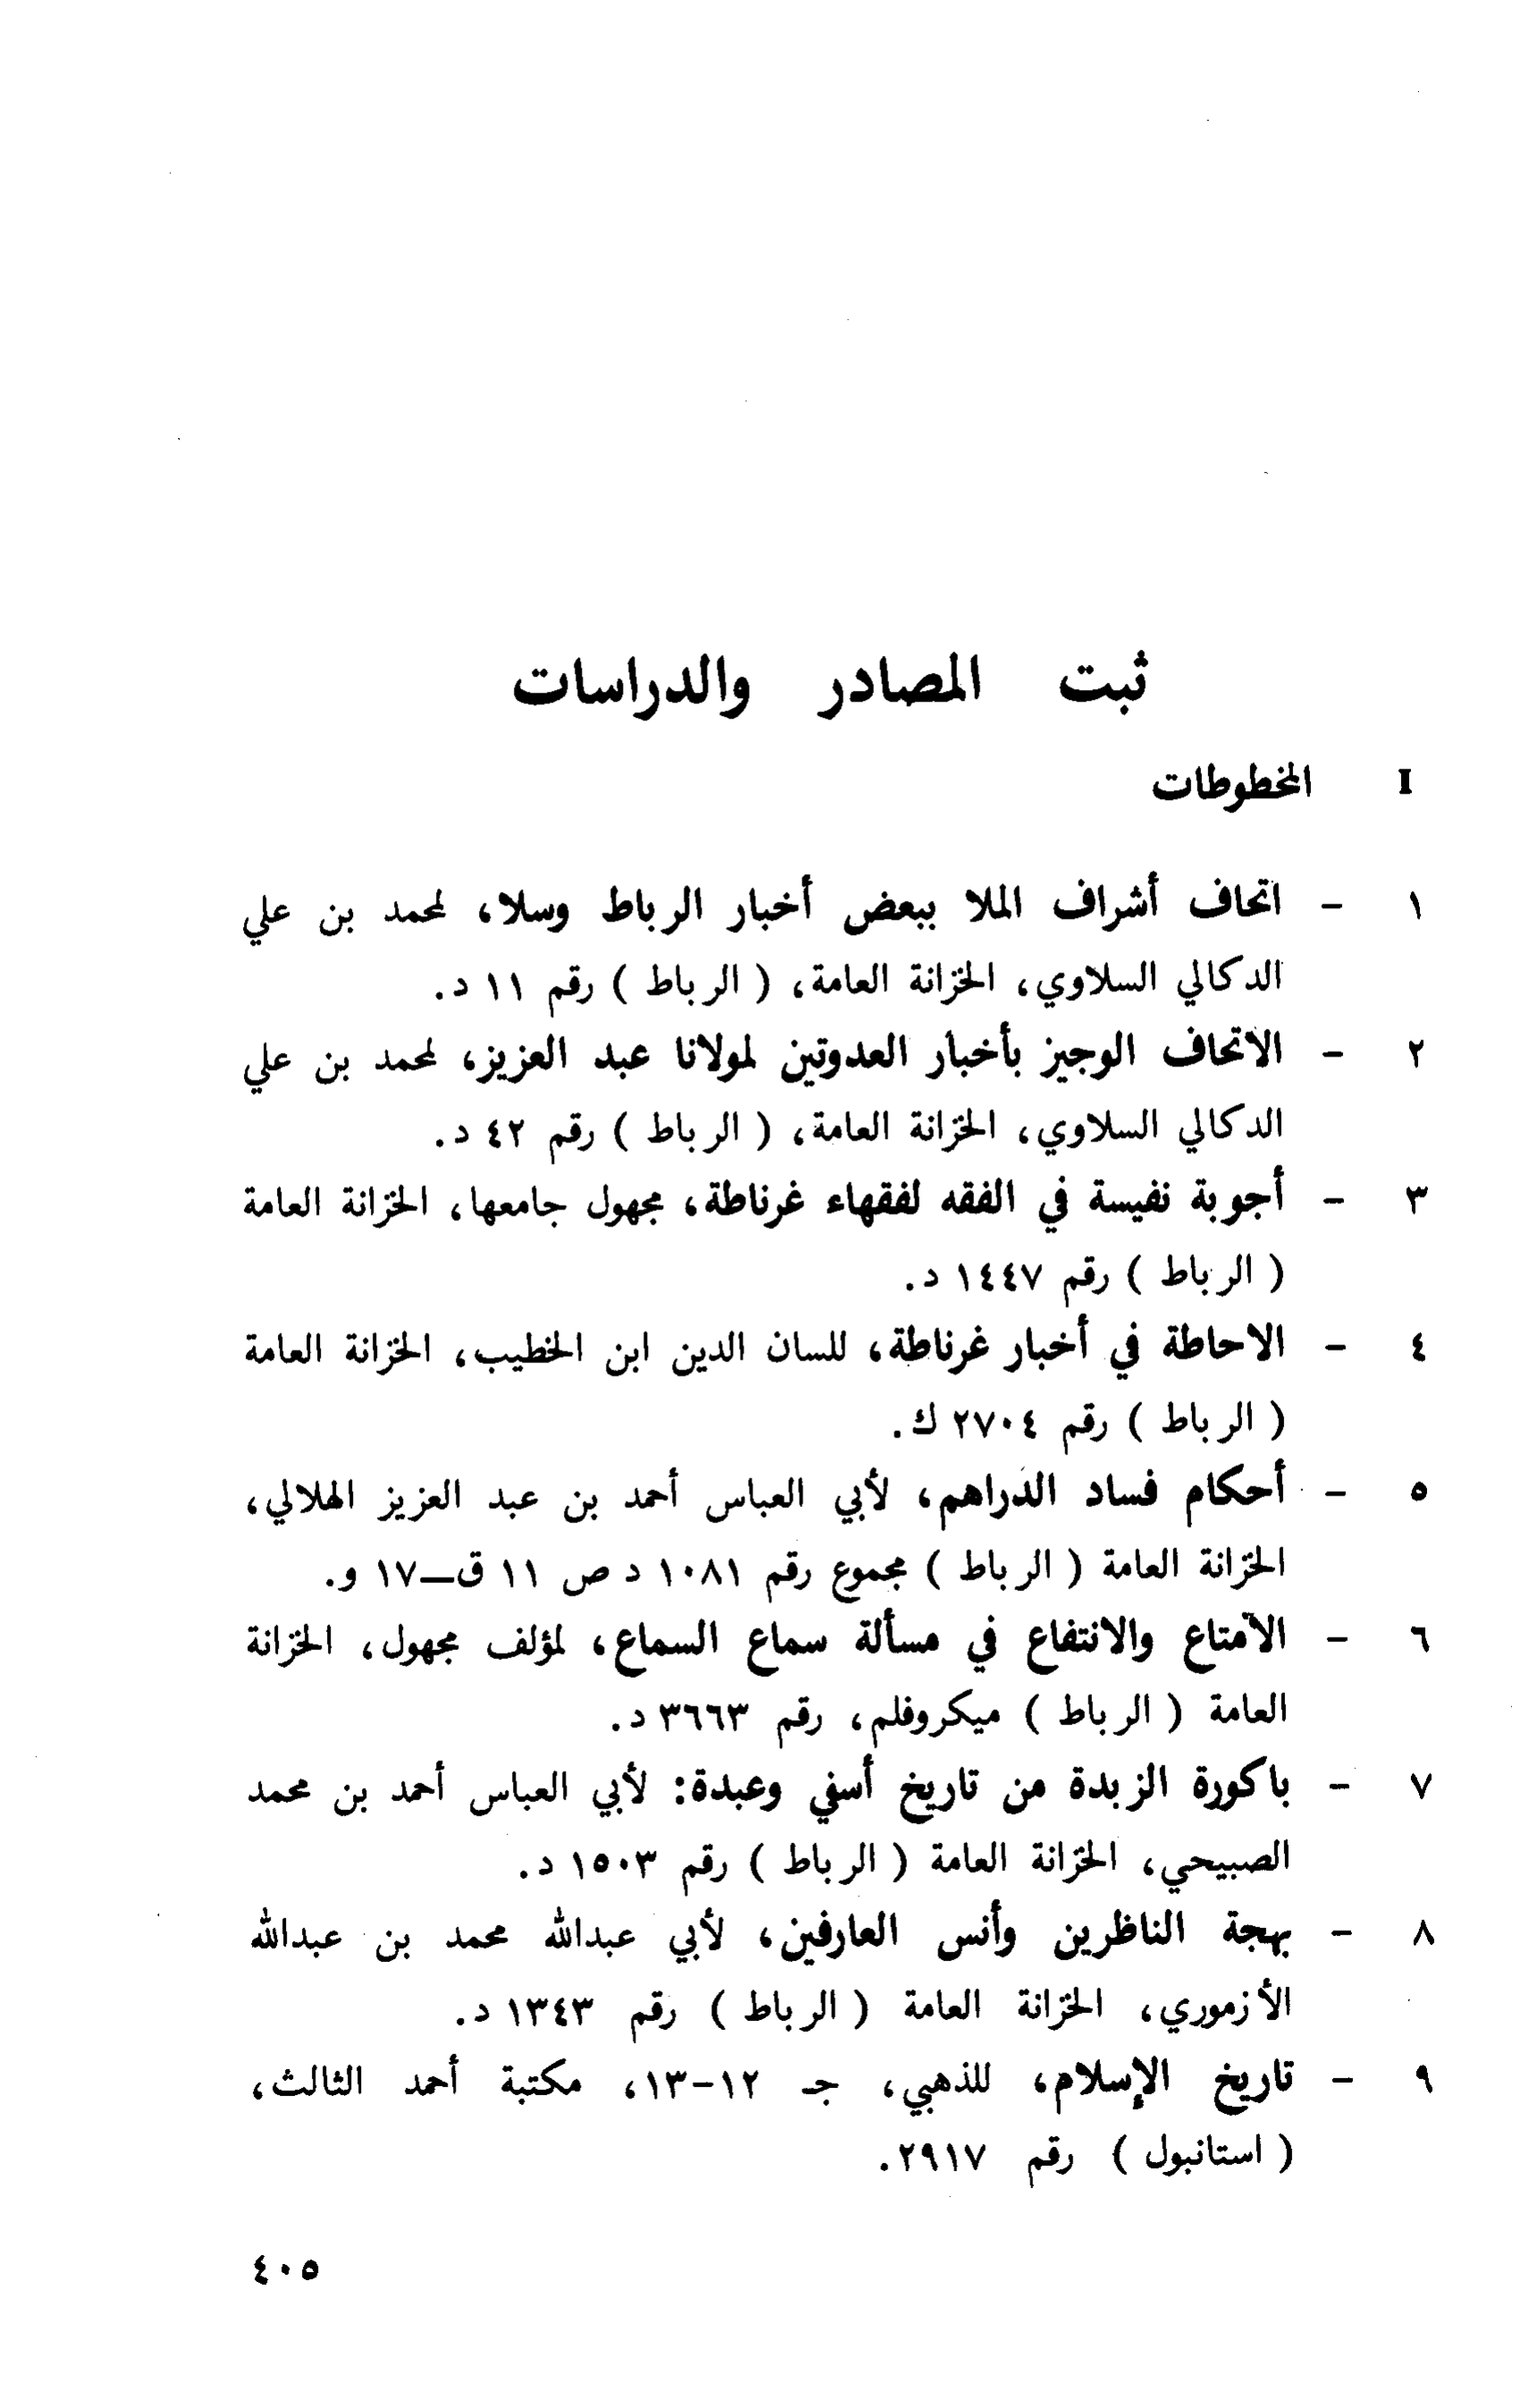 ثبت المصادر والدراسات
I المخطوطات
١ - اتحاف أشراف الملا ببعض أخبار الرباط وسلا، لمحمد بن علي
الدكالي السلاوي، الخزانة العامة، ( الرباط ) رقم ١١ د.
٢ - الاتحاف الوجيز بأخبار العدوتين لمولانا عبد العزيز، لمحمد بن علي
الدكالي السلاوي، الخزانة العامة، ( الرباط ) رقم ٤٢ د.
٣ - أجوبة نفيسة في الفقه لفقهاء غرناطة، مجهول جامعها، الخزانة العامة
( الرباط ) رقم ١٤٤٧ د.
٤ - الاحاطة في أخبار غرناطة، للسان الدين ابن الخطيب، الخزانة العامة
( الرباط ) رقم ٢٧٠٤ ك.
٥ - أحكام فساد الدراهم، لأبي العباس أحمد بن عبد العزيز الهلالي،
الخزانة العامة ( الرباط ) مجموع رقم ١٠٨١ د ص ١١ ق-١٧ و.
٦ - الامتاع والانتفاع في مسألة سماع السماع، لمؤلف مجهول، الخزانة
العامة ( الرباط ) ميكروفلم، رقم ٣٦٦٣ د.
٧ - باكورة الزبدة من تاريخ أسفي وعبدة: لأبي العباس أحمد بن محمد
الصبيحي، الخزانة العامة ( الرباط ) رقم ١٥٠٣ د.
٨ - بهجة الناظرين وأنس العارفين، لأبي عبدالله محمد بن عبدالله
الأزموري، الخزانة العامة ( الرباط ) رقم ١٣٤٣ د.
٩ - تاريخ الإسلام، للذهبي، جـ ١٢-١٣، مكتبة أحمد الثالث،
( استانبول ) رقم ٢٩١٧.
٤٠٥